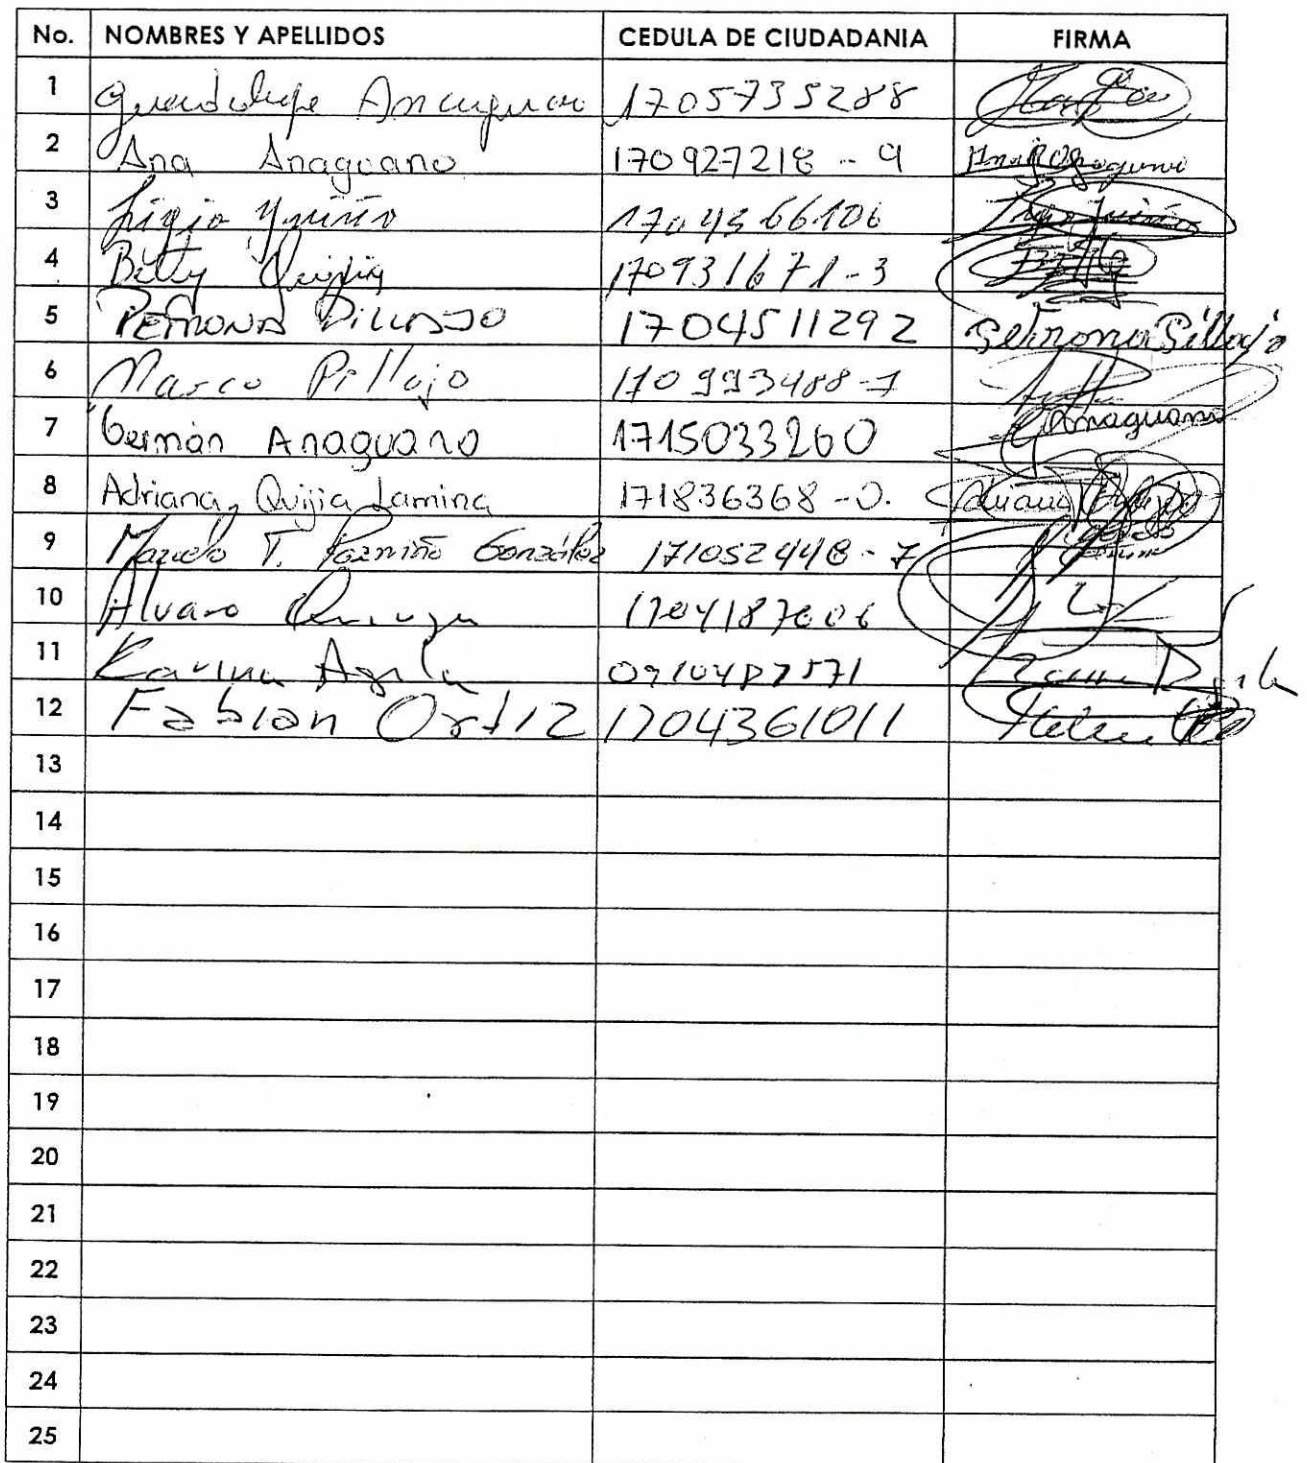 No. NOMBRES Y APELLIDOS CEDULA DE CIUDADANIA FIRMA
1 Guadalupe 1705735288
2 Ana Anaguano 170927218-9
3 1704366106
4 Betty Quijia 170931671-3
5 PETRONA PILLAJO 1704511292 Petrona Pillajo
6 Marco Pillajo 170993488-1
7 Germán Anaguano 1715033260 GAnaguano
8 Adriana Quijia Lamina 171836368-0. Adriana
9 Marcelo T. Pazmiño González 171052448-7
10 Alvaro 1704187006
11 Karina
12 Fabian Ortiz 1704361011
13
14
15
16
17
18
19
20
21
22
23
24
25